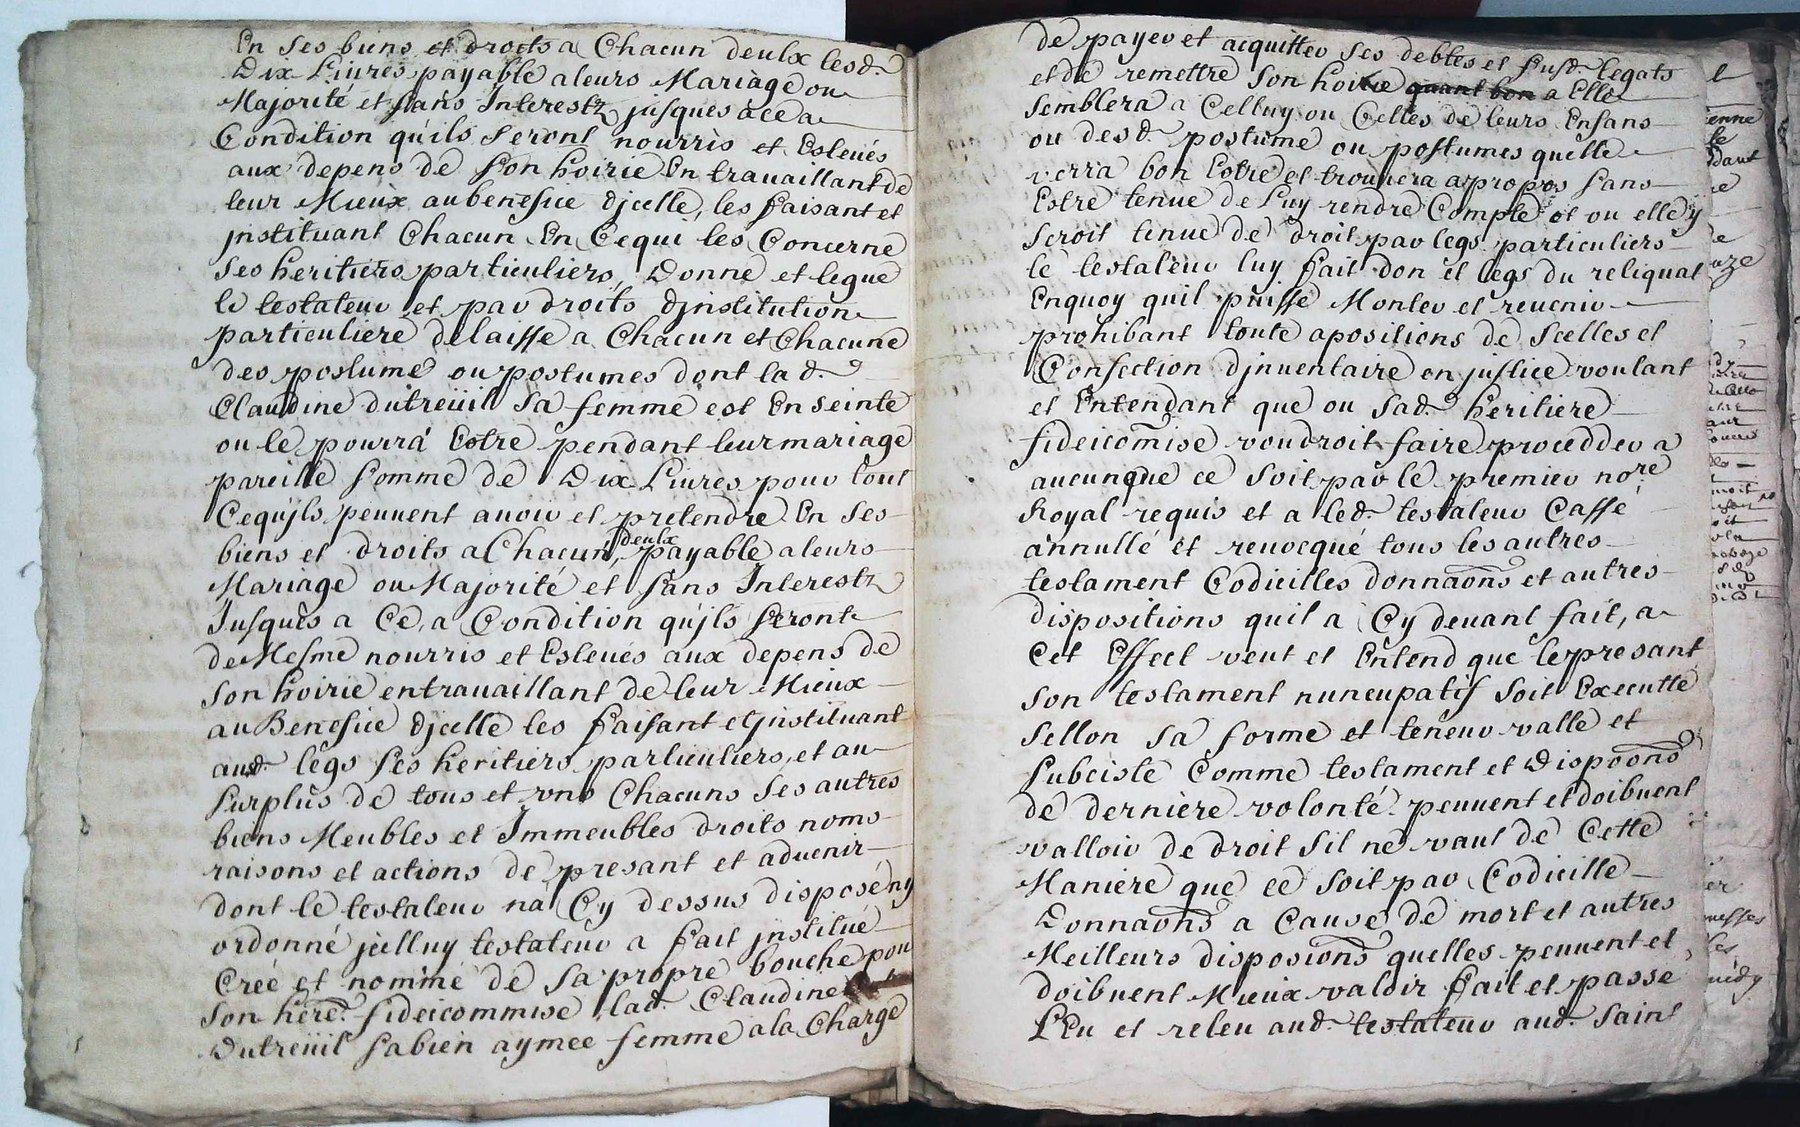 En ses biens et droits a Chacun deulx lesd.
Dix Livres payable a leurs Mariage ou
Majorité et sans Interestz jusques à ce a
Condition qu'ils seront nourris et Esleués
aux depens de son hoirie En trauaillant de
leur Mieux au benefice djcelle, les faisant et
jnstituant Chacun En Cequi les Concerne
ses heritiers particuliers, Donne et legue
le testateur et par droits djnstitution
particuliere delaisse a Chacun et Chacune
des postume ou postumes dont lad.
Claudine dutreüil sa femme est Enseinte
ou le pourra Estre pendant leur mariage
pareille somme de Dix Liures pour tout
Cequ'jls peuuent auoir et pretendre En ses
biens et droits a Chacun deulx, payable a leurs
Mariage ou Majorité et sans Interestz
Jusques a Ce, a Condition qu'jls seront
de Mesme nourris et Esleués aux depens de
son hoirie en trauaillant de leur Mieux
au Benefice djcelle les faisant et jnstituant
aud. legs ses heritiers particuliers, et au
surplus de tous et vns Chacuns ses autres
biens Meubles et Immeubles droits noms
raisons et actions de presant et aduenir
dont le testateur na Cy dessus disposé ny
ordonné jcelluy testateur a fait jnstitué
Creé et nommé de sa propre bouche pour
son here. fideicommise lad. Claudine
Dutreüil sa bien aymee femme a la Charge
de payer et acquitter ses debtes et susd. legats
et de remettre son hoirie quant bon a Elle
semblera a Celluy ou Celles de leurs Enfans
ou desd. postume ou postumes quelle
verra bon Estre et trouuera apropos sans
Estre tenue de Luy rendre Compte et ou elle y
seroit tenue de droit par legs particuliers
le testateur luy fait don et legs du reliquat
Enquoy quil puisse Monter et reuenir
prohibant toute apositions de scelles et
Confection djnuentaire en justice voulant
et Entendant que ou sad. heritiere
fideicomise voudroit faire procedder a
aucunque ce soit par le premier nore
Royal requis et a led. testateur Cassé
annullé et reuocqué tous les autres
testament Codicilles donnaons et autres
dispositions quil a Cy deuant fait, a
Cet Effect veut et Entend que le presant
son testament nuncupatif soit Executte
sellon sa forme et teneur valle et
subciste Comme testament et Disposons
de derniere volonté peuuent et doibuent
valloir de droit sil ne vaut de Cette
Maniere que ce soit par Codicille
Donnaons a Cause de mort et autres
Meilleurs disposions quelles peuuent et
doibuent Mieux valoir fait et passé
Leu et releu aud. testateur aud. saint